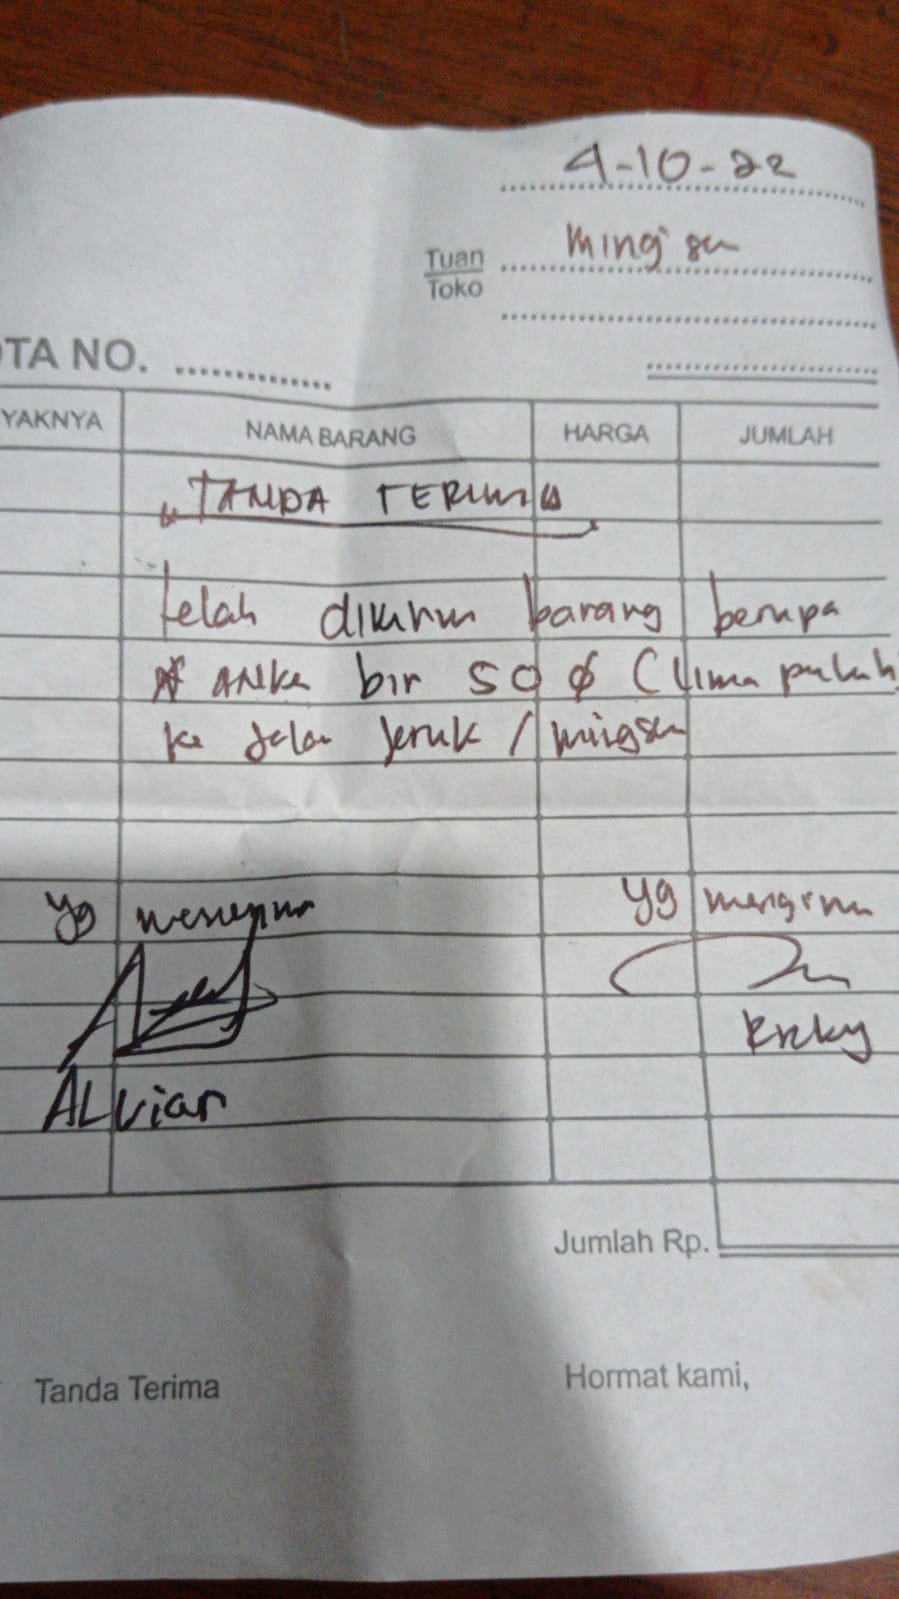 4-10-22
Tuan Ming'sen
Toko
OTA NO.
YAKNYA NAMA BARANG HARGA JUMLAH
"TANDA TERIMA
telah dikirim barang berupa
ANKER bir 50 (lima puluh)
ke Jalan Jeruk / mingsen
yg menerima yg mengirim
ALvian
Jumlah Rp.
Tanda Terima Hormat kami,